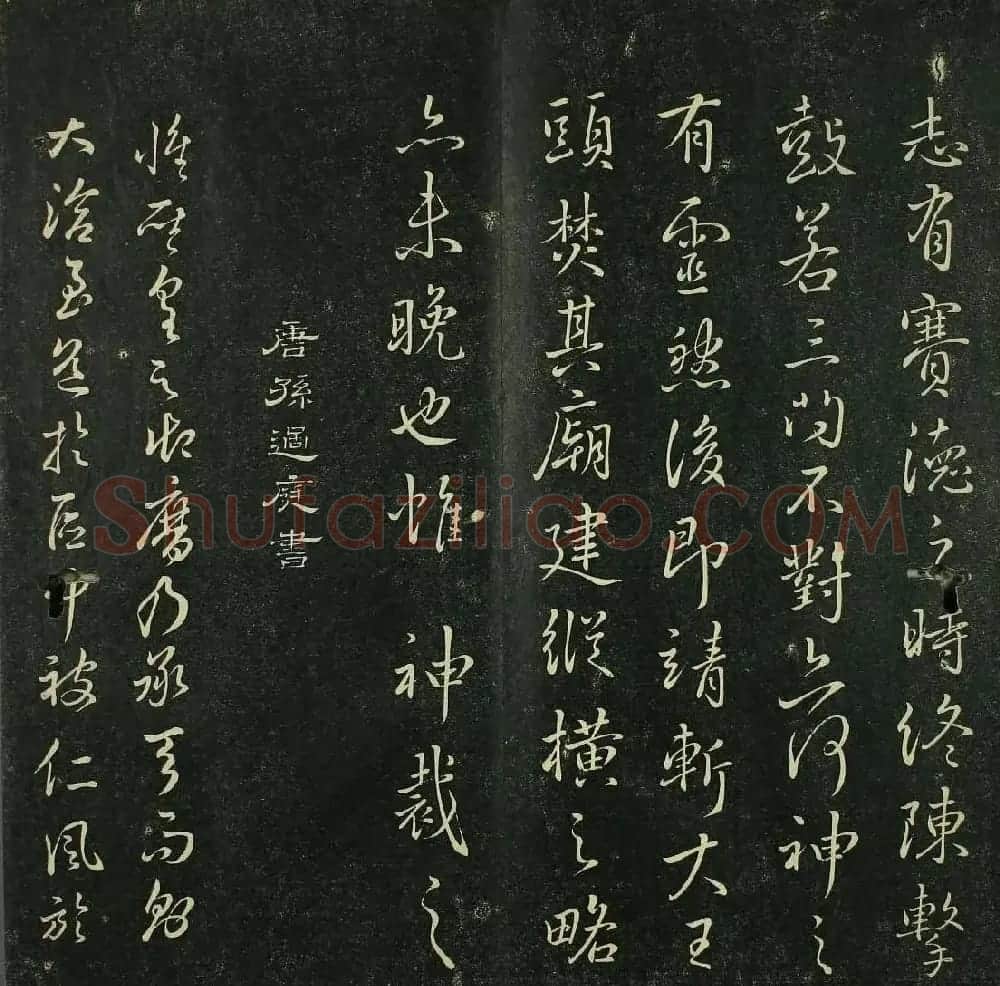 志有賽德之時終陳擊
鼓若三問不對亦何神之
有靈然後即靖斬大王
頭焚其廟建縱橫之略
亦未晚也惟神裁之
唐孫過庭書
惟皇之乃承天而
大洽至道於區中被仁風於
Shufaziliao.COM